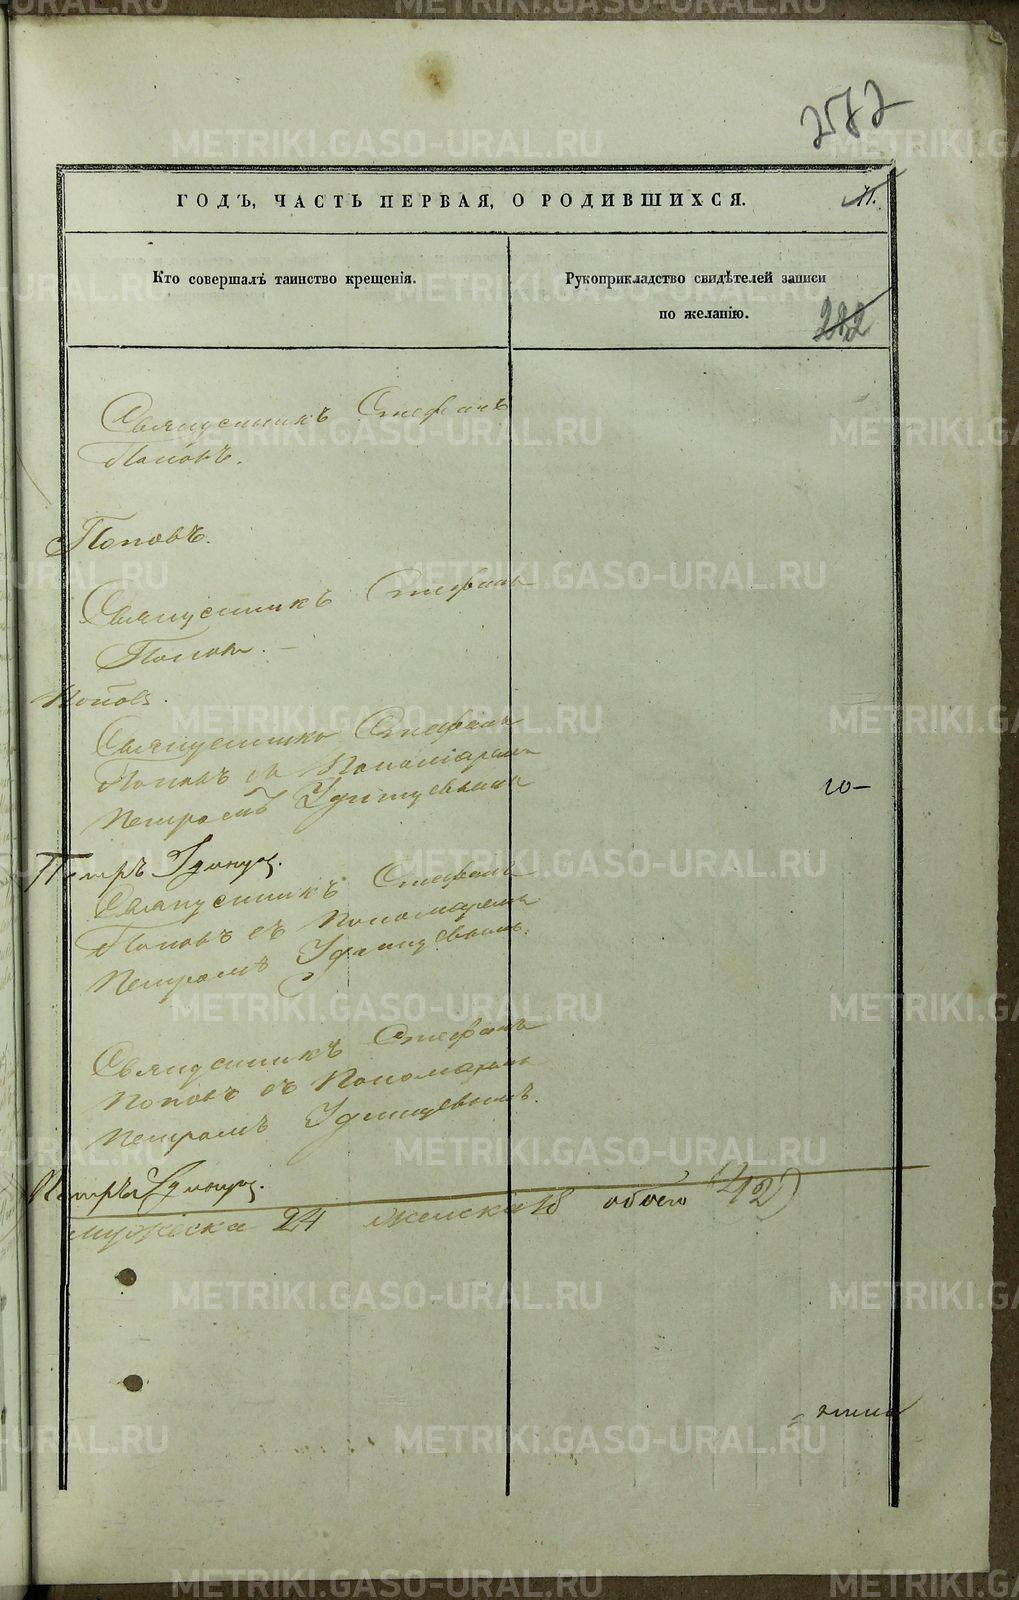 272
ГОДЪ, ЧАСТЬ ПЕРВАЯ, О РОДИВШИХСЯ.
11.
Кто совершалъ таинство крещенія.
Рукоприкладство свидѣтелей записи
по желанію.
282
Священникъ Стефанъ
Поповъ.
Поповъ.
Священникъ Стефанъ
Поповъ.
Поповъ.
Священникъ Стефанъ
Поповъ съ Пономаремъ
Петромъ Удинцевымъ
Петръ Удинц.
Священникъ Стефанъ
Поповъ съ Пономаремъ
Петромъ Удинцевымъ.
Священникъ Стефанъ
Поповъ съ Пономаремъ
Петромъ Удинцевымъ.
Петръ Удинц.
мужеска 24 женска 18 обоего (42)
METRIKI.GASO-URAL.RU